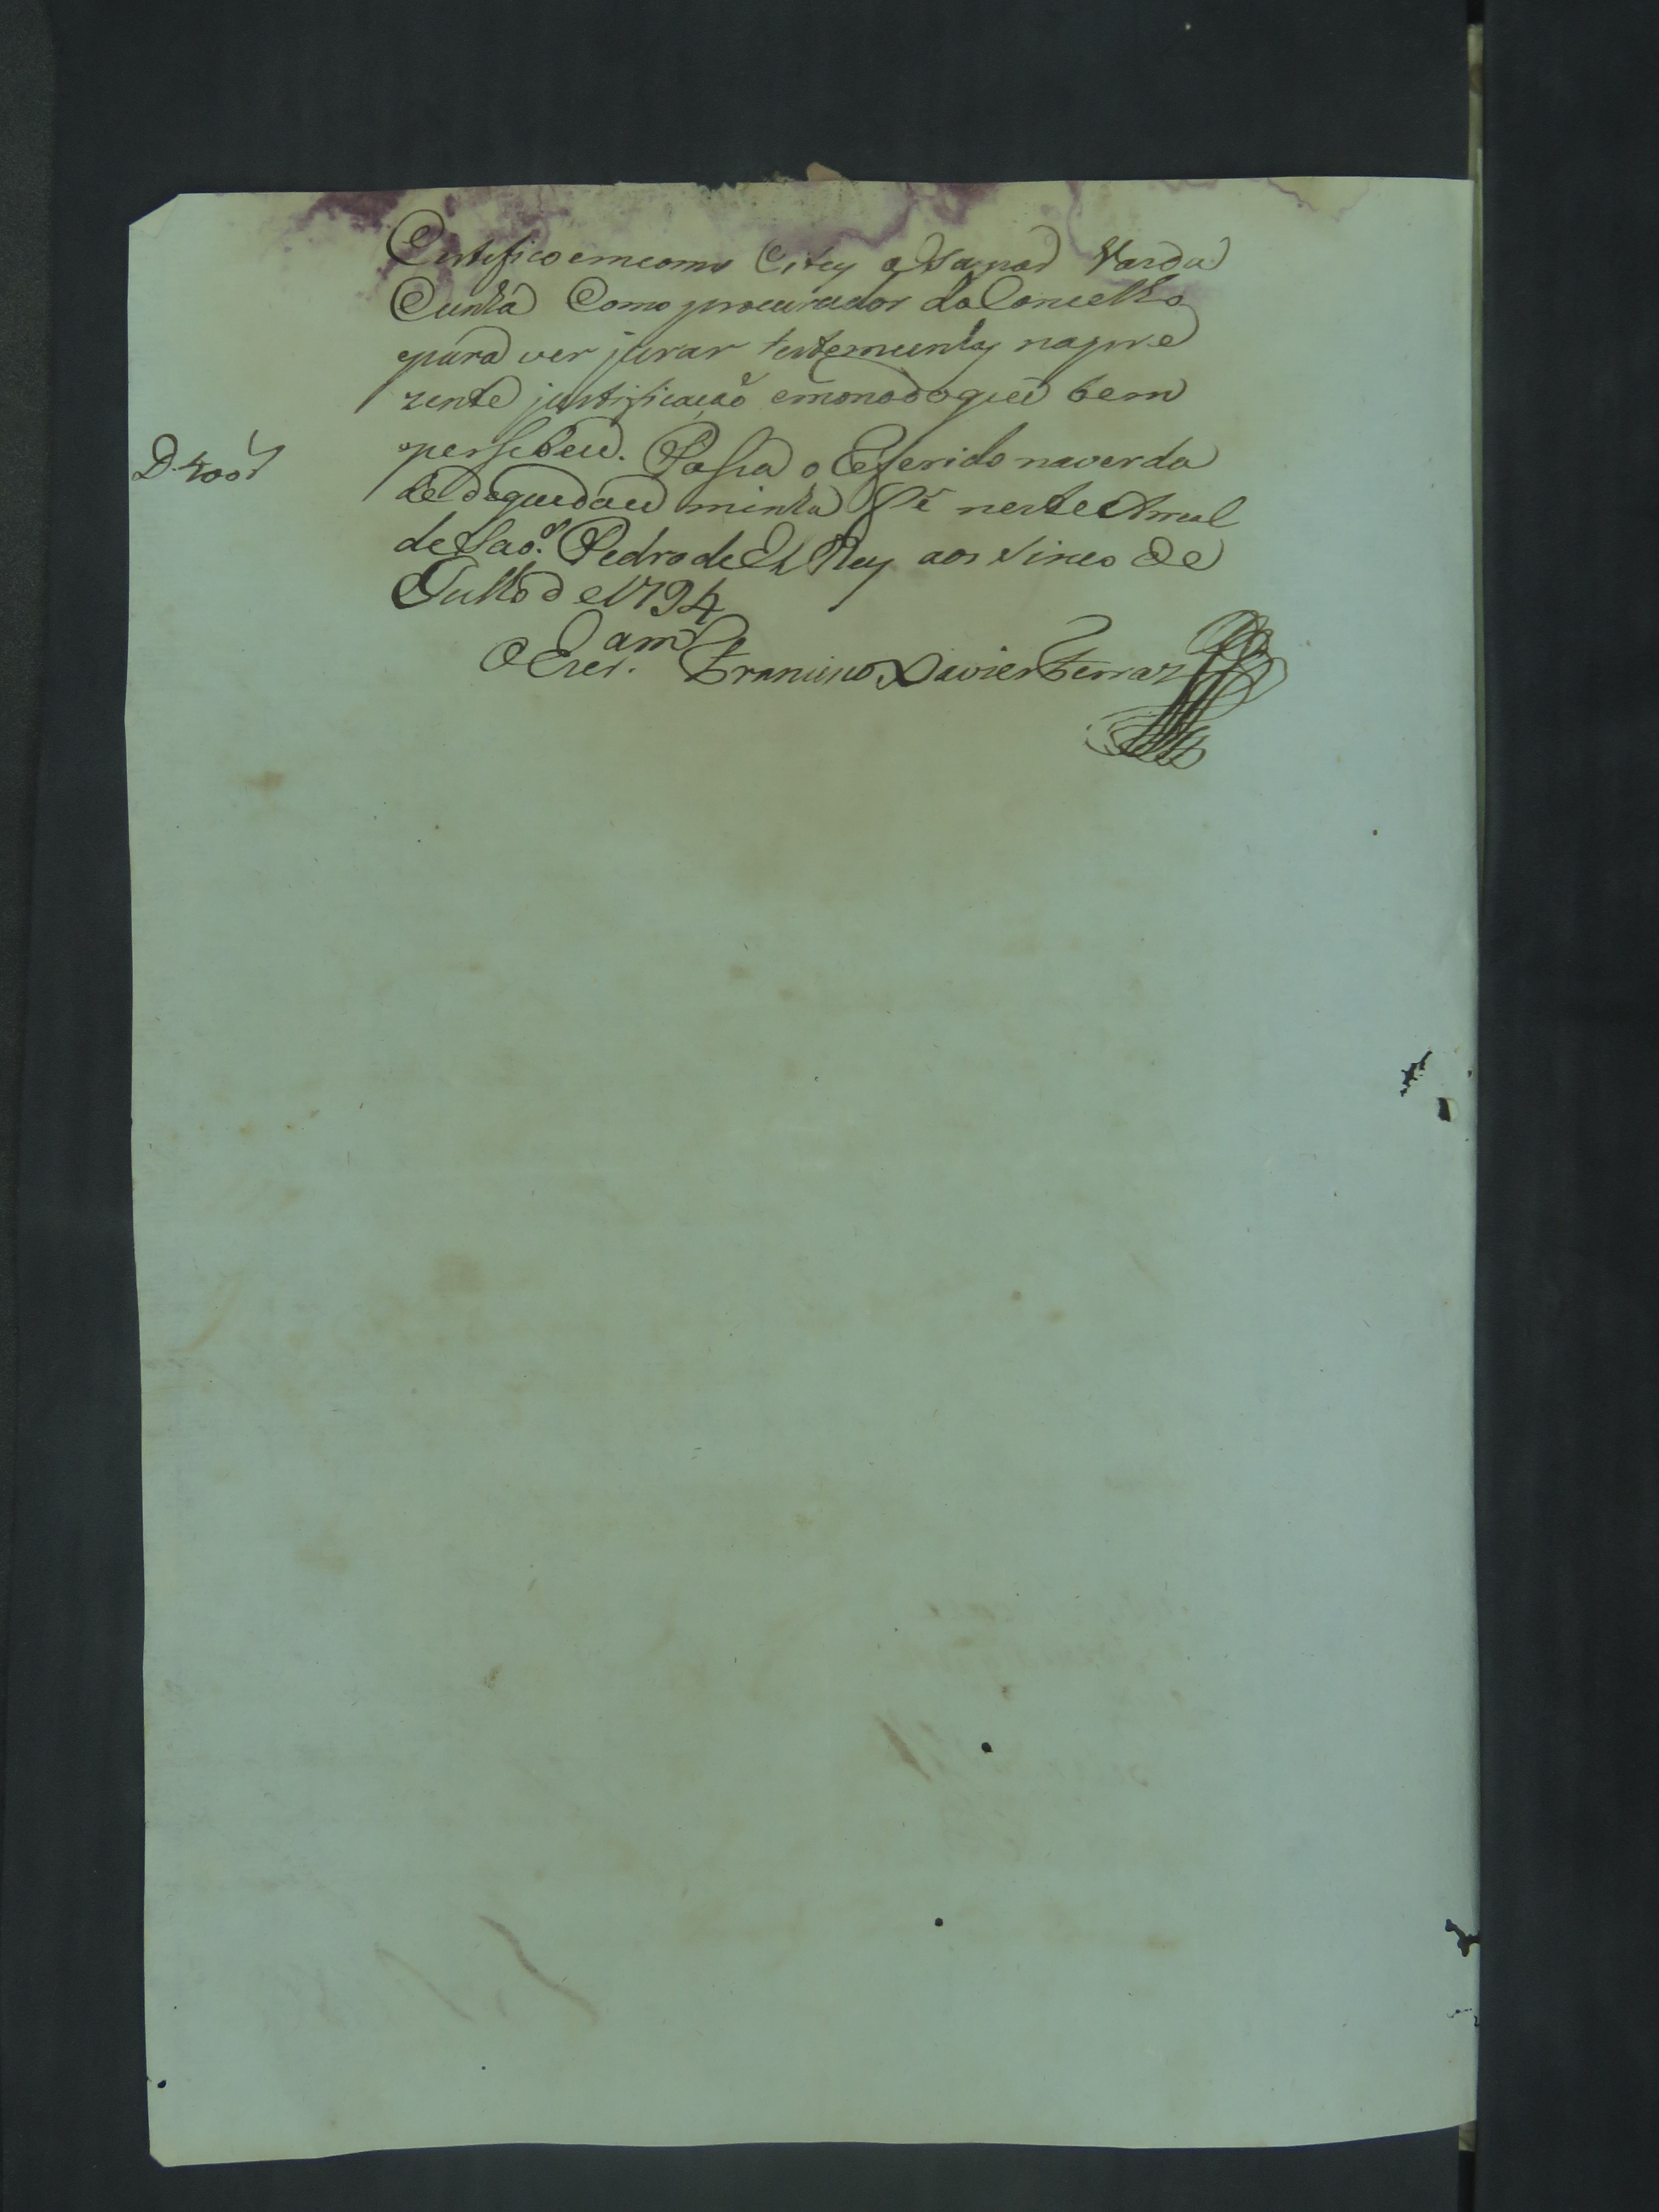 Certifico em como Citey a Vaz da
Cunha Como procurador do Concelho
para ver jurar testemunhas na pre
zente justificaçaõ do que bem
D. 400
persebeu. Pasa o Referido na verda
de do que dou minha Fé neste Arreal
de Saõ Pedro de El Rey aos Sinco de
Julho de 1794
O Escr.am Francisco Xavier Ferraz